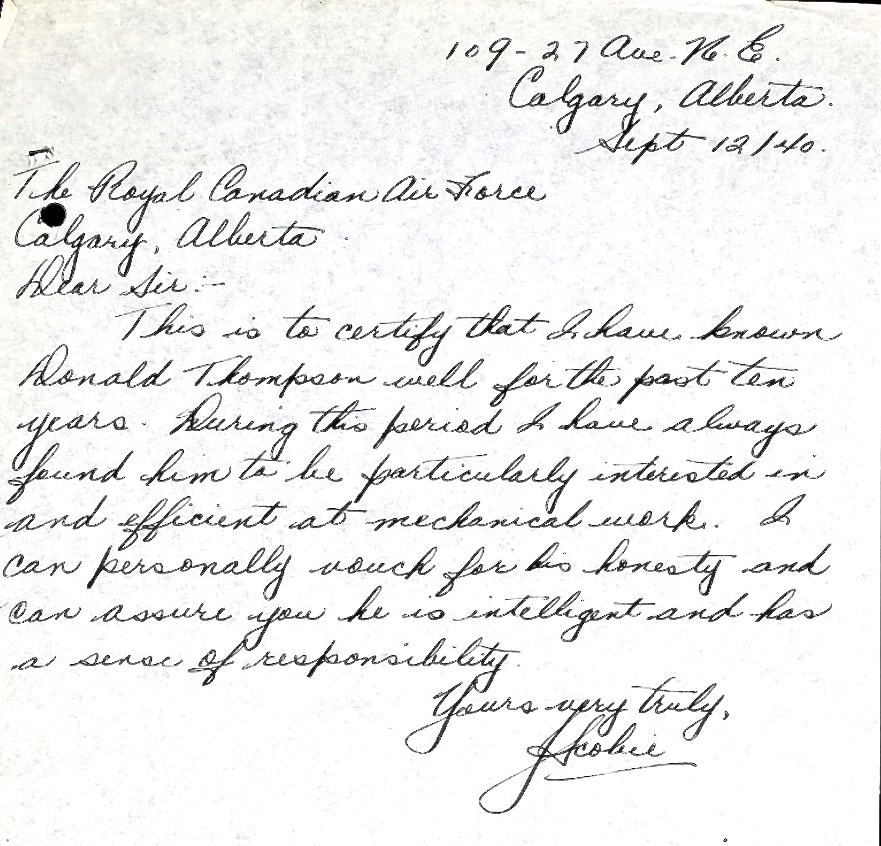 109-27 Ave. N.E.
Calgary, Alberta.
Sept 12/40.
The Royal Canadian Air Force
Calgary, Alberta
Dear Sir:-
This is to certify that I have known
Donald Thompson well for the past ten
years. During this period I have always
found him to be particularly interested in
and efficient at mechanical work. I
can personally vouch for his honesty and
can assure you he is intelligent and has
a sense of responsibility.
Yours very truly,
J Scobie